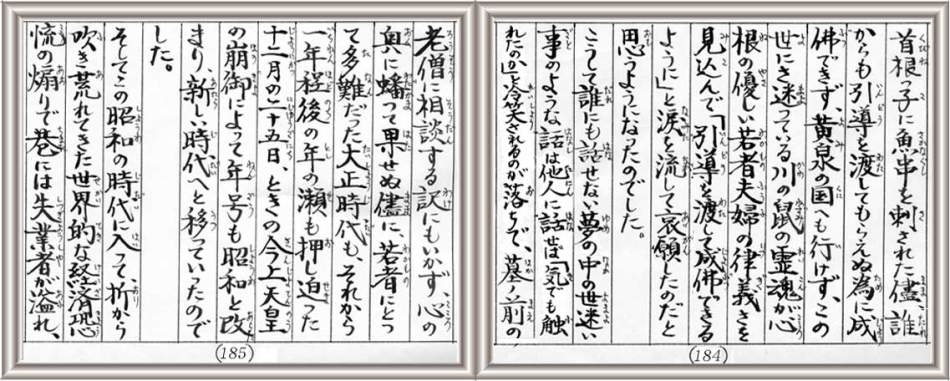 首根っ子に魚串を刺された儘、誰
からも引導を渡してもらえぬ為に成
佛できず、黄泉の国へも行けず、この
世にさ迷っている川の鼠の霊魂が心
根の優しい若者夫婦の律義さを
見込んで「引導を渡して成佛できる
ように」と涙を流して哀願したのだと
思うようになったのでした。
こうして誰にも話せない夢の中の世迷い
事のような話は他人に話せば「気でも触
れたのか」と冷笑されるのが落ちで、前の
(184)
老僧に相談する訳にもいかず、心の
奥に蟠って果せぬ儘に、若者にとっ
て多難だった大正時代も、それから
一年程後の年の瀬も押し迫った
十二月の二十五日、ときの今上天皇
の崩御によって年号も昭和と改
まり、新しい時代へと移っていったので
した。
そしてこの昭和の時代に入って、折から
吹き荒れてきた世界的な経済恐
慌の煽りで巷には失業者が溢れ、
(185)